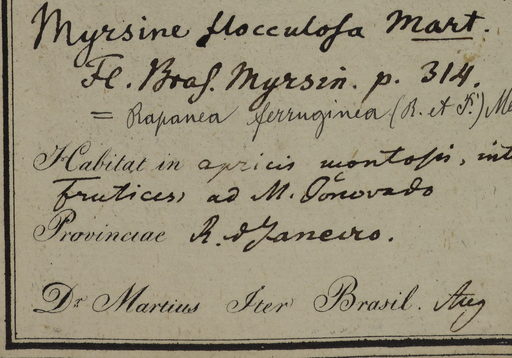 Myrsine flocculosa Mart.
Fl. Bras. Myrsin. p. 314.
= Rapanea ferruginea (R. et P.) Me
Habitat in apricis montosis, int
frutices, ad M.
Provinciae R. d Janeiro.
Dr Martius Iter Brasil. Aug